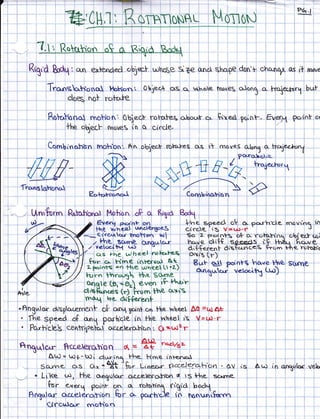 PG.1
CH.7: ROTATIONAL MOTION
7.1: Rotation of a Rigid Body
Rigid Body: an extended object whose size and shape don't change as it move
Translational Motion: Object as a whole moves along a trajectory but
does not rotate
Rotational motion: Object rotates about a fixed point. Every point o
the object moves in a circle.
Combination motion: An object rotates as it moves along a trajectory
parabolic
trajectory
Translational
Rotational
Combination
Uniform Rotational Motion of a Rigid Body
Every point on
the wheel undergoes
circular motion w/
the same angular
velocity ω
as the wheel rotates
for a time interval Δt
2 points on the wheel (1+2)
turn through the same
angle (θ₁=θ₂) even if their
distances (r) from the axis
may be different
the speed of a particle moving in
circle is v=ω·r
So 2 points of a rotating object w
have diff. speeds if they have
different distances from the rotatio
axis (r)
But all points have the same
angular velocity (ω)
Axle
• Angular displacement of any point on the wheel Δθ=ωΔt
• The speed of any particle in the wheel is v=ω·r
• Particle's centripetal acceleration: a=ω²r
Angular Acceleration α = Δω/Δt rad/s²
Δω = ωf - ωi during the time interval
Same as for linear acceleration - Δv is Δω in angular velo
• Like ω, the angular acceleration α is the same
for every point on a rotating rigid body
Angular acceleration for a particle in nonuniform
circular motion